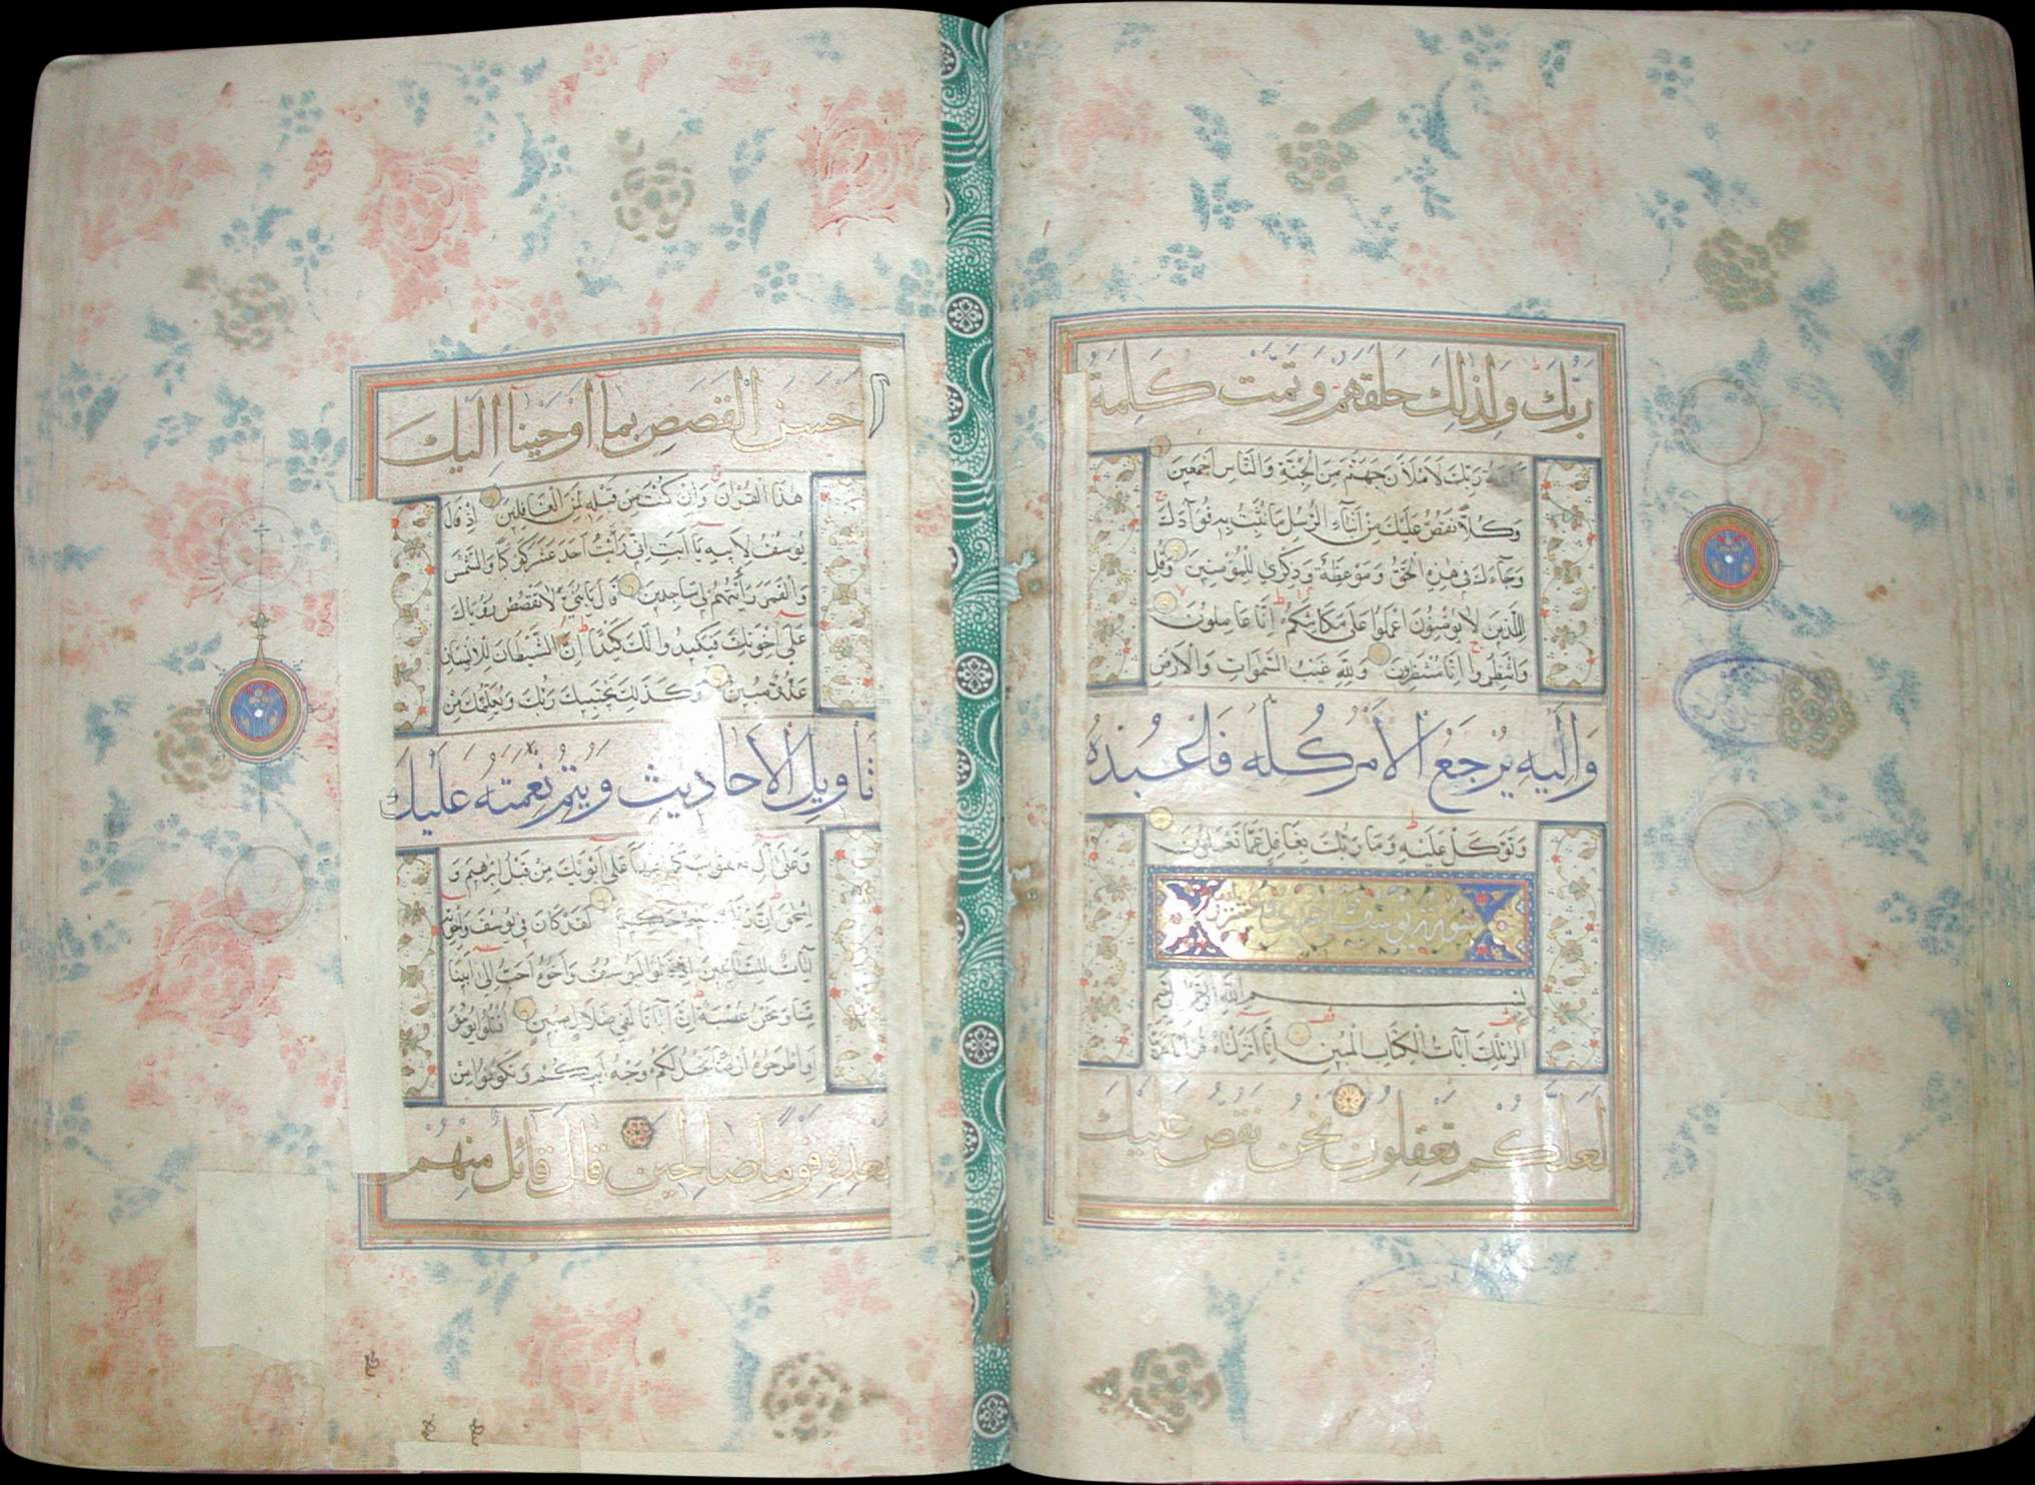 رَبُّكَ وَلِذٰلِكَ خَلَقَهُمْ وَتَمَّتْ كَلِمَةُ
رَبِّكَ لَاَمْلَاَنَّ جَهَنَّمَ مِنَ الْجِنَّةِ وَالنَّاسِ اَجْمَعِينَ
وَكُلًّا نَقُصُّ عَلَيْكَ مِنْ اَنْبَاءِ الرُّسُلِ مَا نُثَبِّتُ بِهِ فُؤَادَكَ
وَجَاءَكَ فِى هٰذِهِ الْحَقُّ وَمَوْعِظَةٌ وَذِكْرٰى لِلْمُؤْمِنِينَ وَقُلْ
لِلَّذِينَ لَا يُؤْمِنُونَ اعْمَلُوا عَلٰى مَكَانَتِكُمْ اِنَّا عَامِلُونَ
وَانْتَظِرُوا اِنَّا مُنْتَظِرُونَ وَلِلّٰهِ غَيْبُ السَّمٰوَاتِ وَالْاَرْضِ
وَاِلَيْهِ يُرْجَعُ الْاَمْرُ كُلُّهُ فَاعْبُدْهُ
وَتَوَكَّلْ عَلَيْهِ وَمَا رَبُّكَ بِغَافِلٍ عَمَّا تَعْمَلُونَ
بِسْمِ اللّٰهِ الرَّحْمٰنِ الرَّحِيمِ
الٓرٰ تِلْكَ آيَاتُ الْكِتَابِ الْمُبِينِ اِنَّا اَنْزَلْنَاهُ قُرْآنًا عَرَبِيًّا
لَعَلَّكُمْ تَعْقِلُونَ نَحْنُ نَقُصُّ عَلَيْكَ
اَحْسَنَ الْقَصَصِ بِمَا اَوْحَيْنَا اِلَيْكَ
هٰذَا الْقُرْآنَ وَاِنْ كُنْتَ مِنْ قَبْلِهِ لَمِنَ الْغَافِلِينَ اِذْ قَالَ
يُوسُفُ لِاَبِيهِ يَا اَبَتِ اِنِّى رَاَيْتُ اَحَدَ عَشَرَ كَوْكَبًا وَالشَّمْسَ
وَالْقَمَرَ رَاَيْتُهُمْ لِى سَاجِدِينَ قَالَ يَا بُنَىَّ لَا تَقْصُصْ رُؤْيَاكَ
عَلٰى اِخْوَتِكَ فَيَكِيدُوا لَكَ كَيْدًا اِنَّ الشَّيْطَانَ لِلْاِنْسَانِ
عَدُوٌّ مُبِينٌ وَكَذٰلِكَ يَجْتَبِيكَ رَبُّكَ وَيُعَلِّمُكَ مِنْ
تَاْوِيلِ الْاَحَادِيثِ وَيُتِمُّ نِعْمَتَهُ عَلَيْكَ
وَعَلٰى آلِ يَعْقُوبَ كَمَا اَتَمَّهَا عَلٰى اَبَوَيْكَ مِنْ قَبْلُ اِبْرٰهِيمَ وَ
اِسْحٰقَ اِنَّ رَبَّكَ عَلِيمٌ حَكِيمٌ لَقَدْ كَانَ فِى يُوسُفَ وَاِخْوَتِهِ
آيَاتٌ لِلسَّائِلِينَ اِذْ قَالُوا لَيُوسُفُ وَاَخُوهُ اَحَبُّ اِلٰى اَبِينَا
مِنَّا وَنَحْنُ عُصْبَةٌ اِنَّ اَبَانَا لَفِى ضَلَالٍ مُبِينٍ اقْتُلُوا يُوسُفَ
اَوِ اطْرَحُوهُ اَرْضًا يَخْلُ لَكُمْ وَجْهُ اَبِيكُمْ وَتَكُونُوا مِنْ
بَعْدِهِ قَوْمًا صَالِحِينَ قَالَ قَائِلٌ مِنْهُمْ